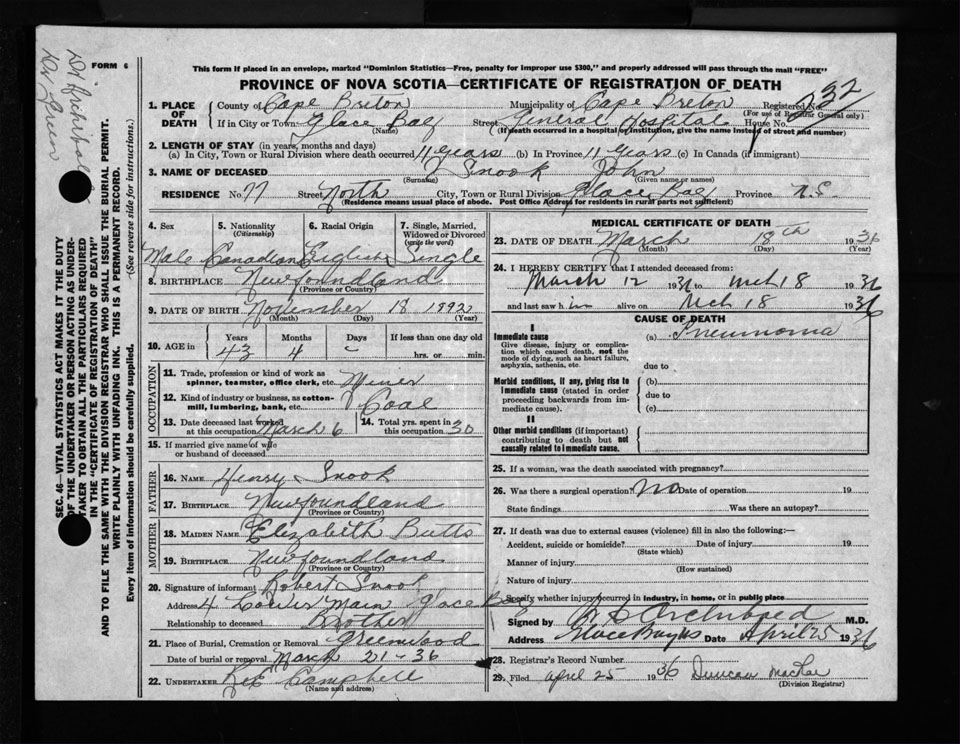 Dr Archibald
Dr Green
FORM 6
This form if placed in an envelope, marked "Dominion Statistics—Free, penalty for improper use $300," and properly addressed will pass through the mail "FREE"
PROVINCE OF NOVA SCOTIA—CERTIFICATE OF REGISTRATION OF DEATH
SEC. 46—VITAL STATISTICS ACT MAKES IT THE DUTY
OF THE UNDERTAKER OR PERSON ACTING AS UNDER-
TAKER TO OBTAIN ALL THE PARTICULARS REQUIRED
IN THE "CERTIFICATE OF REGISTRATION OF DEATH"
AND TO FILE THE SAME WITH THE DIVISION REGISTRAR WHO SHALL ISSUE THE BURIAL PERMIT.
WRITE PLAINLY WITH UNFADING INK. THIS IS A PERMANENT RECORD.
Every item of information should be carefully supplied. (See reverse side for instructions.)
1. PLACE OF DEATH County of Cape Breton Municipality of Cape Breton Registered No. 32
(For use of Registrar General only)
If in City or Town Glace Bay Street General Hospital House No.
(Name) (If death occurred in a hospital or institution, give the name instead of street and number)
2. LENGTH OF STAY (in years, months and days)
(a) In City, Town or Rural Division where death occurred 11 years (b) In Province 11 years (c) In Canada (if immigrant)
3. NAME OF DECEASED Snook John
(Surname) (Given name or names)
RESIDENCE No. 77 Street North City, Town or Rural Division Glace Bay Province N.S.
(Residence means usual place of abode. Post Office Address for residents in rural parts not sufficient)
4. Sex 5. Nationality (Citizenship) 6. Racial Origin 7. Single, Married, Widowed or Divorced (write the word)
Male Canadian English Single
8. BIRTHPLACE Newfoundland
(Province or Country)
9. DATE OF BIRTH November 18 1892
(Month) (Day) (Year)
10. AGE in Years Months Days If less than one day old
43 4 hrs. or min.
OCCUPATION
11. Trade, profession or kind of work as spinner, teamster, office clerk, etc. Miner
12. Kind of industry or business, as cotton-mill, lumbering, bank, etc. Coal
13. Date deceased last worked at this occupation March 6 14. Total yrs. spent in this occupation 30
15. If married give name of wife or husband of deceased
FATHER
16. NAME Henry Snook
17. BIRTHPLACE Newfoundland
(Province or Country)
MOTHER
18. MAIDEN NAME Elizabeth Butts
19. BIRTHPLACE Newfoundland
(Province or Country)
20. Signature of informant Robert Snook
Address 4 Lower Main Glace Bay
Relationship to deceased Brother
21. Place of Burial, Cremation or Removal Greenwood
Date of burial or removal March 21-36
22. UNDERTAKER Campbell
(Name and address)
MEDICAL CERTIFICATE OF DEATH
23. DATE OF DEATH March 18th 1936
(Month) (Day) (Year)
24. I HEREBY CERTIFY that I attended deceased from:
March 12 1936 to Mch 18 1936
and last saw h im alive on Mch 18 1936
CAUSE OF DEATH
I
Immediate cause (a) Pneumonia
Give disease, injury or complication which caused death, not the mode of dying, such as heart failure, asphyxia, asthenia, etc. due to
Morbid conditions, if any, giving rise to immediate cause (stated in order proceeding backwards from immediate cause). (b)
due to
(c)
II
Other morbid conditions (if important) contributing to death but not causally related to immediate cause.
25. If a woman, was the death associated with pregnancy?
26. Was there a surgical operation? No Date of operation 19
State findings Was there an autopsy?
27. If death was due to external causes (violence) fill in also the following:—
Accident, suicide or homicide? Date of injury 19
(State which)
Manner of injury
(How sustained)
Nature of injury
Specify whether injury occurred in industry, in home, or in public place
Signed by Archibald M.D.
Address Glace Bay NS Date April 25 1936
28. Registrar's Record Number
29. Filed April 25 1936 Duncan MacRae
(Division Registrar)